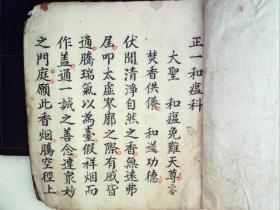 正一和瘟科
大聖　和瘟免難天尊
焚香供養　和送功德
伏聞清淨自然之香無遠弗
屆叩太虛寥廓之際有感皆
通騰瑞氣以為臺假祥烟而
作盖通一誠之善念達衆妙
之門庭願此香烟騰空徑上